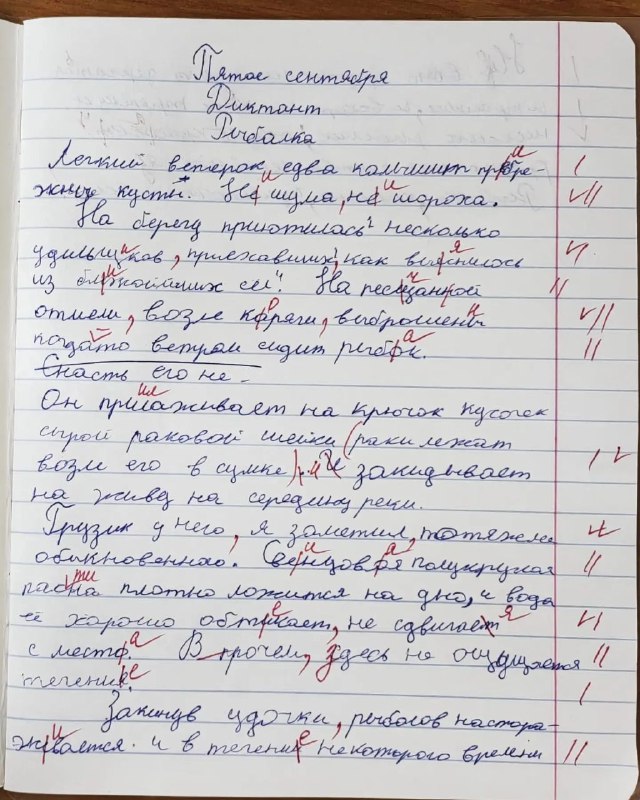 Пятое сентября
Диктант
Рыбалка
Легкий ветерок едва колышит прибре-
жные кусты. Ни шума, ни шороха.
На берегу приютилась несколько
удильщиков, приехавших, как выяснилось
из ближайших сел. На песчаной
отмели, возле коряги, выброшены
ветром сидит рыбак.
Снасть его не
Он прилаживает на крючок кусочек
сырой раковой шейки (раки лежат
возле его в сумке) и закидывает
на живец на середину реки.
Грузик у него, я заметил, потяжеле
обыкновенного. Свинцовая полукруглая
пластина плотно ложится на дно, и вода
её хорошо обтекает, не сдвигает
с места. В прочем, здесь не ощущается
течение.
Закинув удочки, рыболов настора-
живается. и в течение некоторого времени